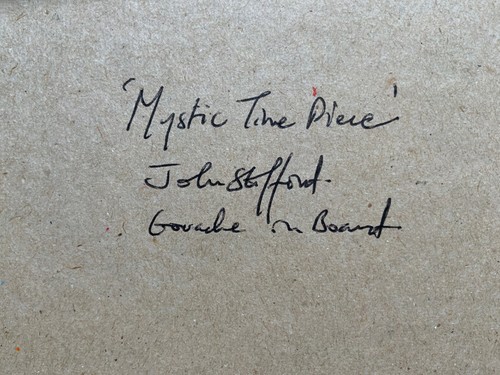 'Mystic Time Piece'
John Stafford.
Gouache on Board